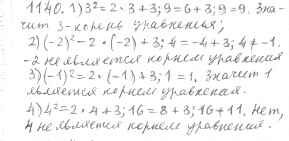 1140. 1) 3²=2·3+3; 9=6+3; 9=9. Зна-
чит 3-корень уравненья;
2) (-2)²-2·(-2)+3; 4=-4+3; 4≠-1.
-2 не является корнем уравнения
3) (-1)²=2·(-1)+3; 1=1, Значит 1
является корнем уравнения.
4) 4²=2·4+3; 16=8+3; 16≠11. Нет,
4 не является корнем уравнения.